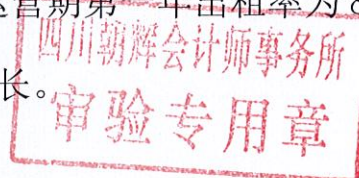 运营期第一年出租率为8
四川朝辉会计师事务所
长。
审验专用章